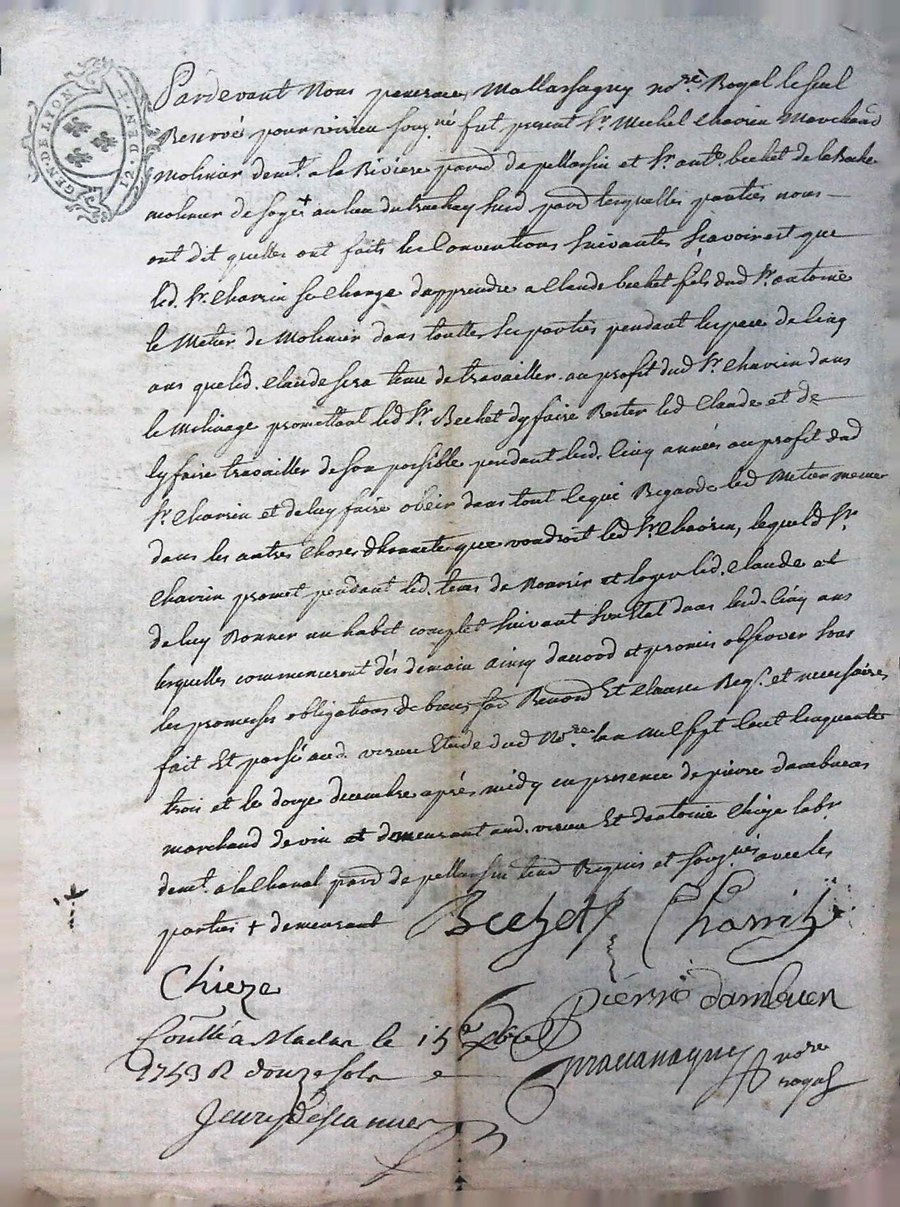 GEN. DE LION
Pardevant Nous Mallassagny no.re Royal le seul
Reservé pour virieu soug.né fut present S.r Michel Chavrin Marchand
molinier dem.t a la Riviere par.s de pellussin et S.r ant.e bechet de la Roche
molinier de soye + au lieu du susd par.s lesquelles parties nous
ont dit quelles ont faits les Conventions suivantes sçavoir est que
led. S.r Chavrin se Charge d'apprendre a Claude bechet fils dud S.r antoine
le Metier de Molinier dans touttes ses parties pendant lespace de Cinq
ans que led. Claude sera tenu de travailler au profit dud S.r Chavrin dans
le Molinage promettant led S.r Bechet dy faire Rester led Claude et de
ly faire travailler de son possible pendant lesd. Cinq années au profit dud
S.r Chavrin et de luy faire obeir dans tout ce qui Regarde led Metier meme
dans les autres Choses dhonnete que voudroit led S.r Chavrin, lequel d S.r
Chavrin promet pendant led. tems de Nourrir et loger led. Claude et
de luy Donner un habit complet suivant son Etat dans lesd. Cinq ans
lesquelles commenceront dès demain ainsy daccord et promis observer sous
les promesses obligations de biens Renond Et Clauses Req.s et necessaires
fait Et passé aud. virieu Etude dud No.re lan mil sept Cent Cinquante
trois et le douze decembre après midy en presence de pierre dambuen
marchand de vin et demeurant aud. virieu Et dantoine Chieze lab.r
dem.t a la Chanal par.s de pellussin Requis et soug.nés avec les
parties + demeurant
Bechet Chavrin
Chieze
Pierre dambuen
Con.llé a Maclas le 15.e Xbre
1753 R douze sols
no.re
royal